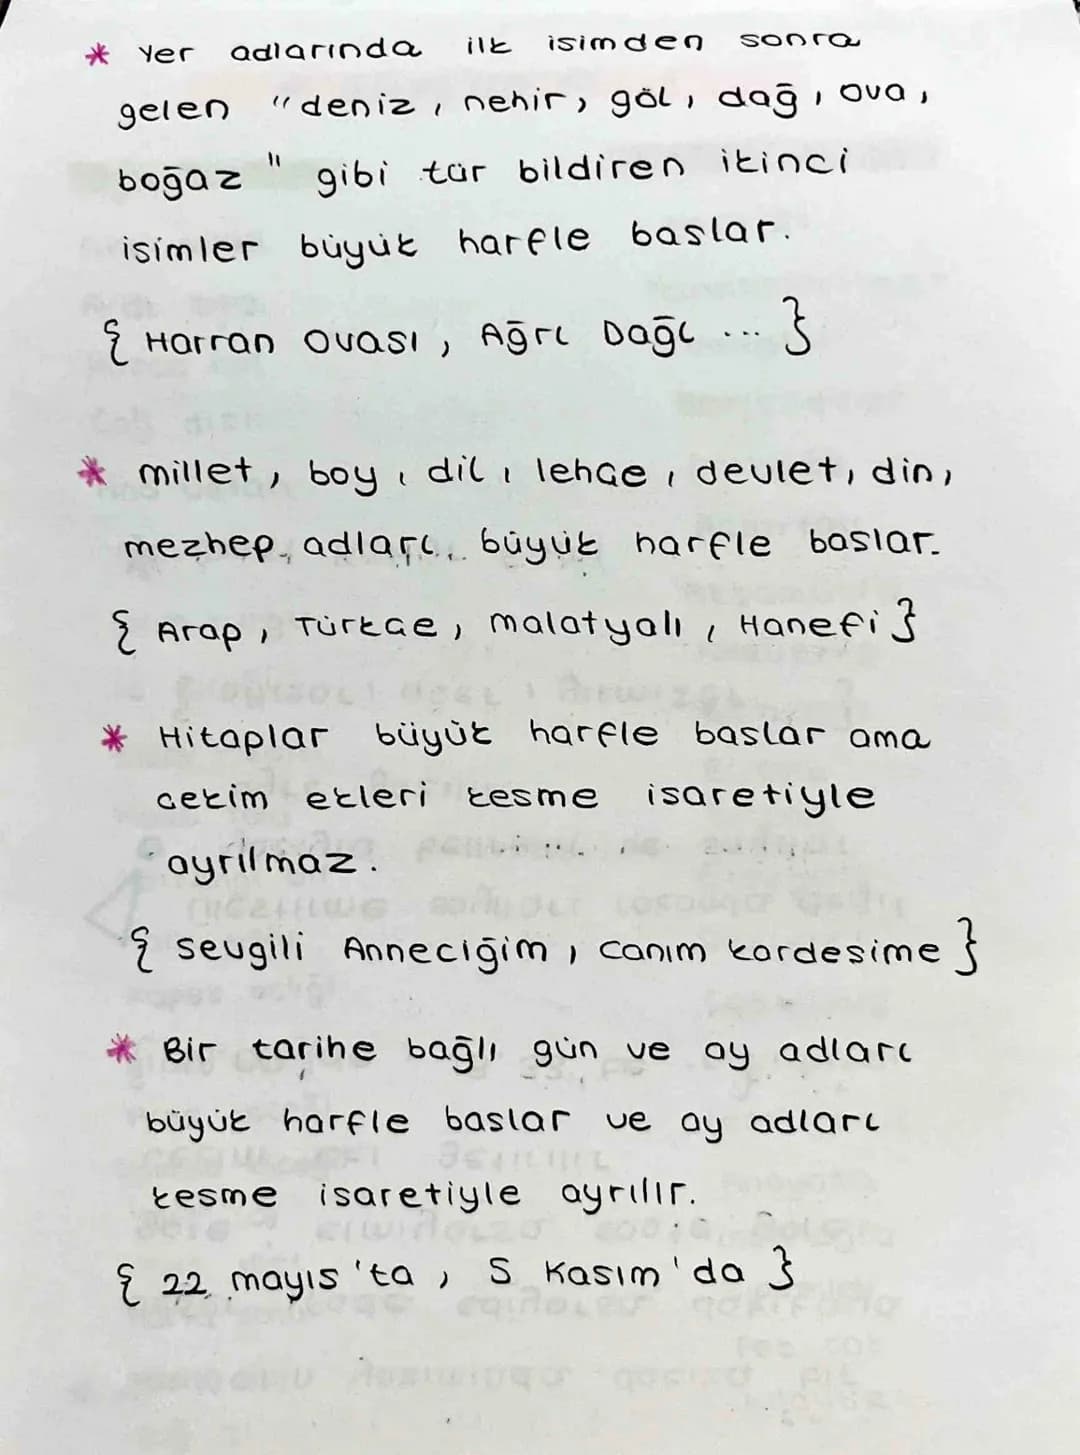 * Yer adlarında ilk isimden sonra
gelen "deniz, nehir, göl, dağ, ova,
boğaz" gibi tür bildiren ikinci
isimler büyük harfle baslar.
{ Harran Ovası, Ağrı Dağı ... }
* millet, boy, dil, lehçe, devlet, din,
mezhep adları büyük harfle baslar.
{ Arap, Türkçe, malatyalı, Hanefi }
* Hitaplar büyük harfle baslar ama
çekim ekleri kesme isaretiyle
ayrılmaz.
{ sevgili Anneciğim, canım kardesime }
* Bir tarihe bağlı gün ve ay adları
büyük harfle baslar ve ay adları
kesme isaretiyle ayrılır.
{ 22 mayıs'ta, 5 Kasım'da }